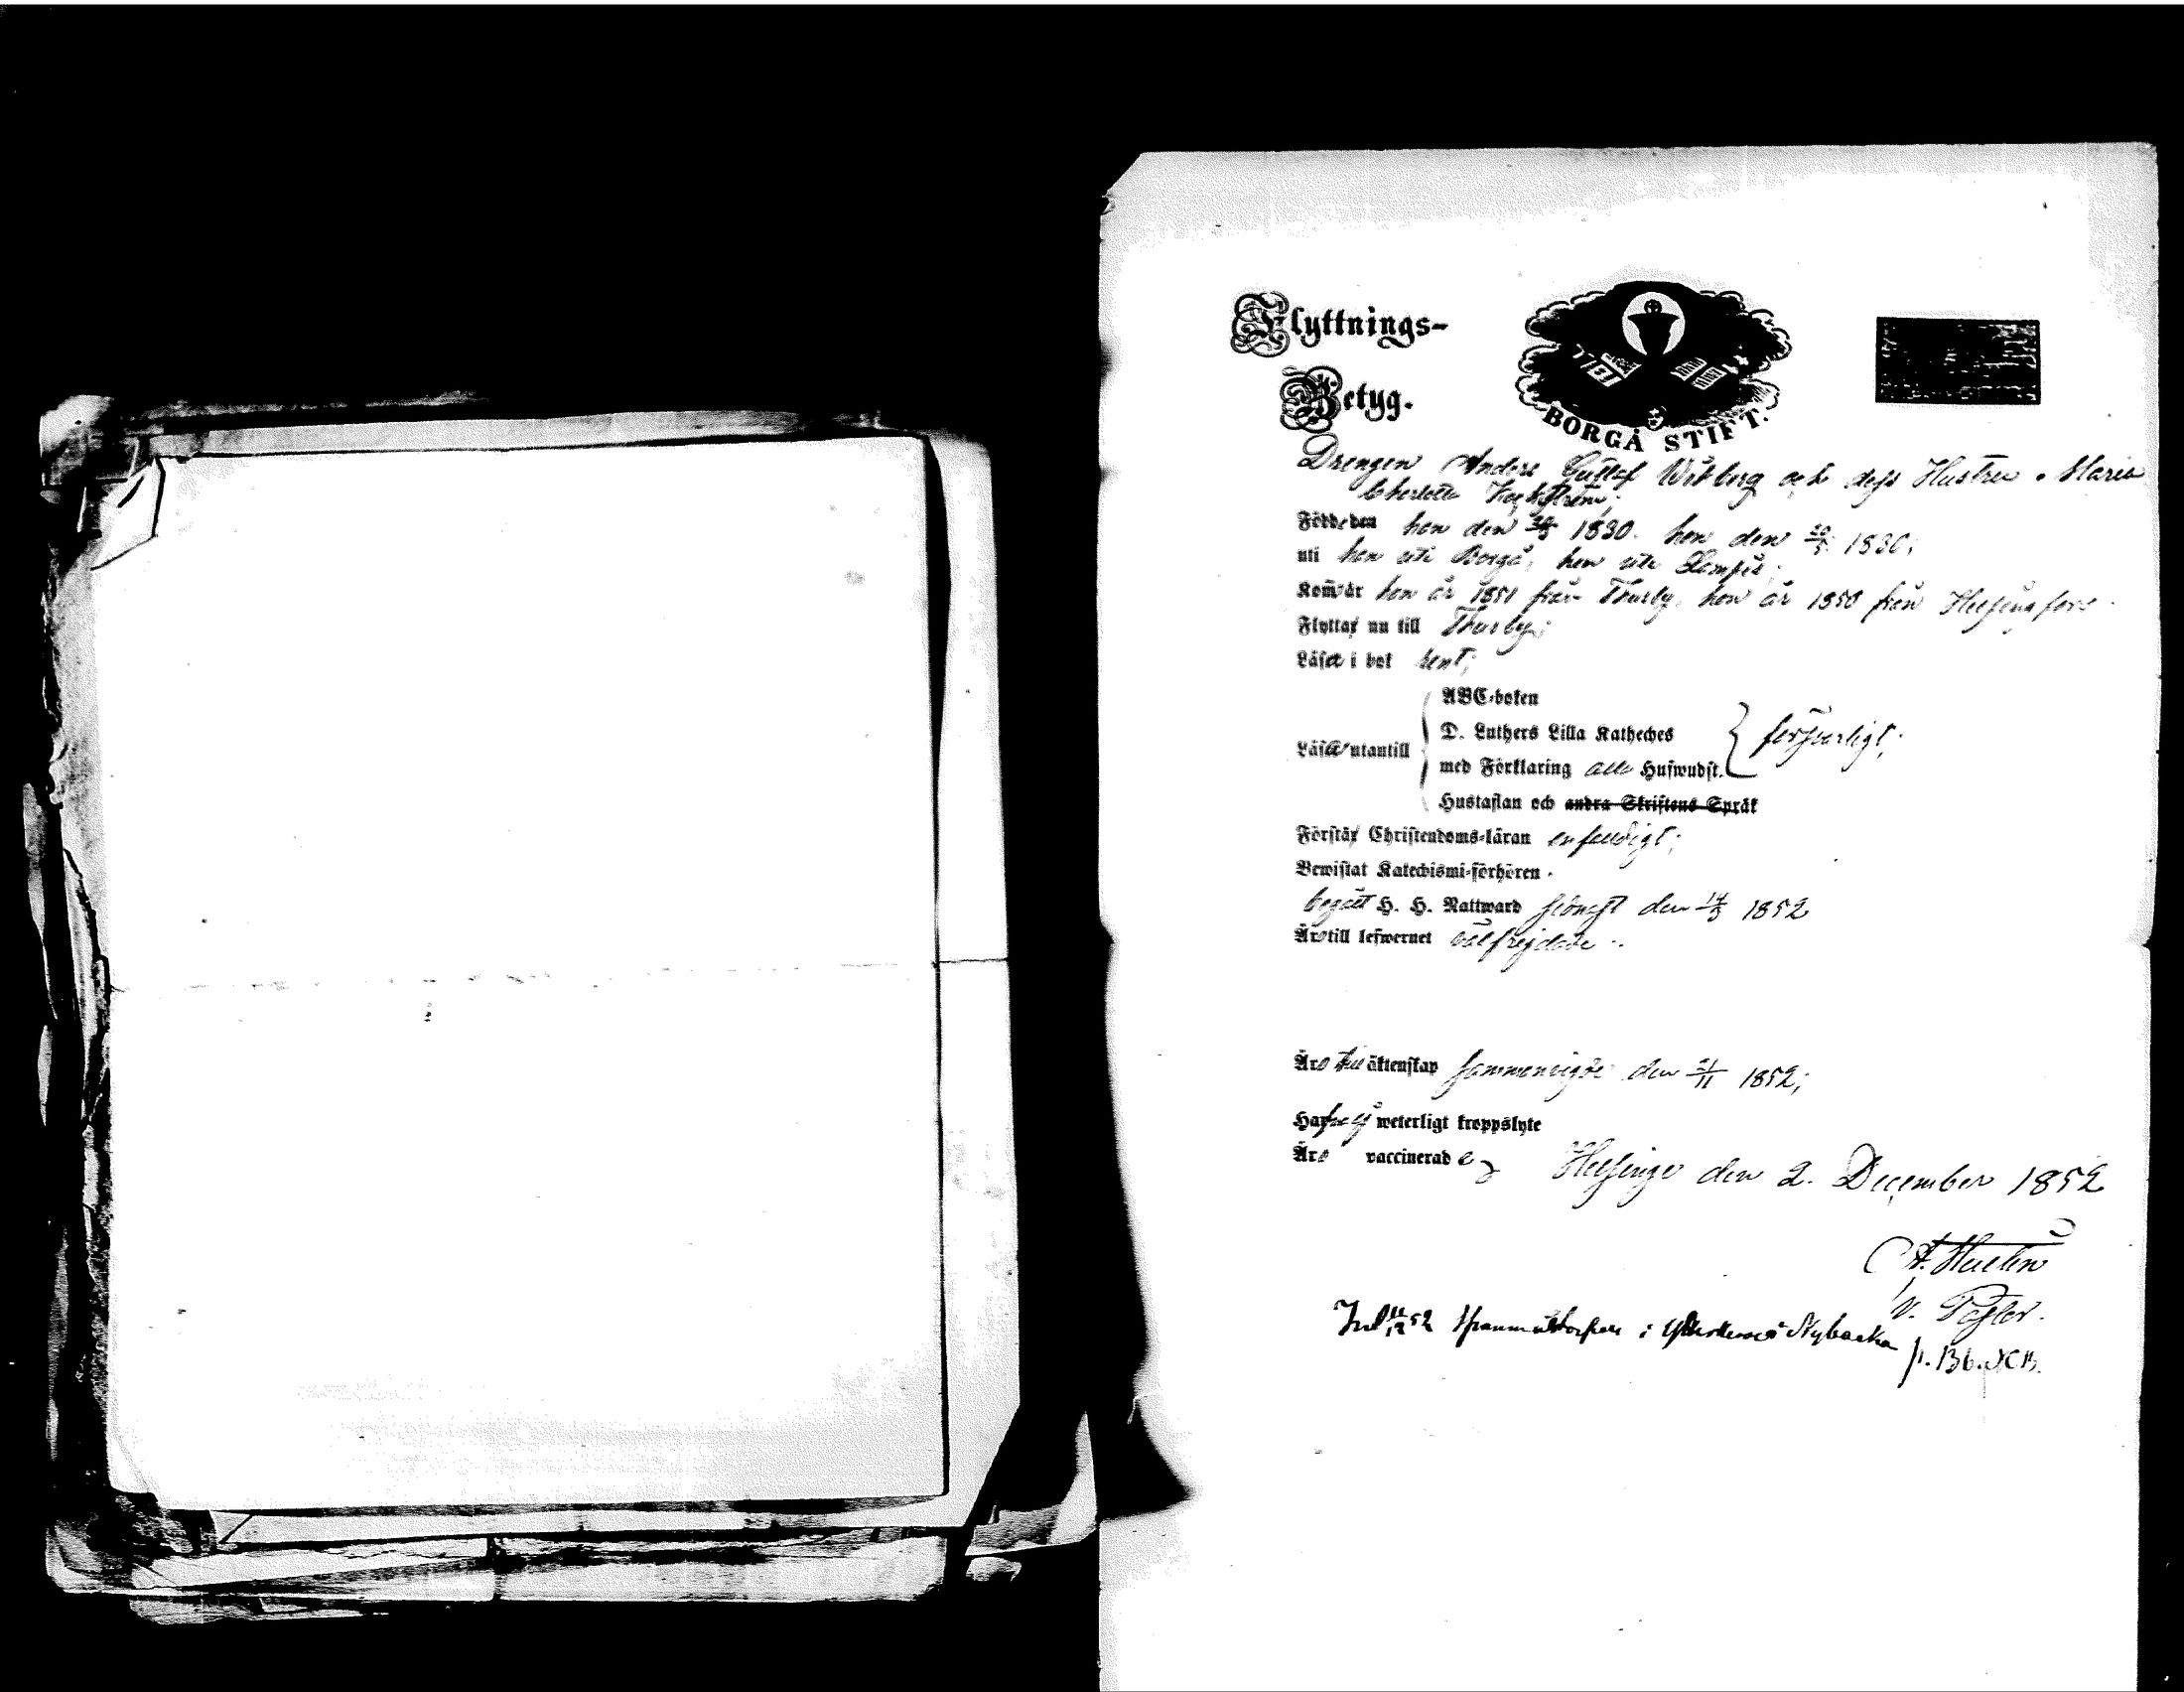 Flyttnings-
Betyg.
BORGÅ STIFT.
Drengen Anders Gustaf Wikberg och dess Hustru Maria
Charlotta
Födde den han den 1830. hon den 20/5 1830;
uti han uti Borgå, hon uti
Kom̄o år han år 1851 från Thusby, hon år 1850 från Helsingfors.
Flytta nu till Thusby;
Läsa i bok rent;
ABC-boken
D. Luthers Lilla Katheches
Läsa utantill försvarligt;
med Förklaring alla Hufwudst.
Hustaflan och andra Skriftens Språk
Förstå Christendoms-läran enfaldigt;
Bewistat Katechismi-förhören.
begått H. H. Nattward sednast den 1852
Äro till lefwernet välfrejdade.
Äro till äktenskap sammanvigde den 21/11 1852;
Hafva ej weterligt kroppslyte
Äro vaccinerade Helsinge den 2. December 1852
v. Pastor.
52 i Nybacka
p. 136.